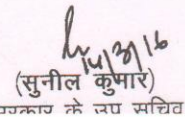 14/3/16
(सुनील कुमार)
सरकार के उप सचिव